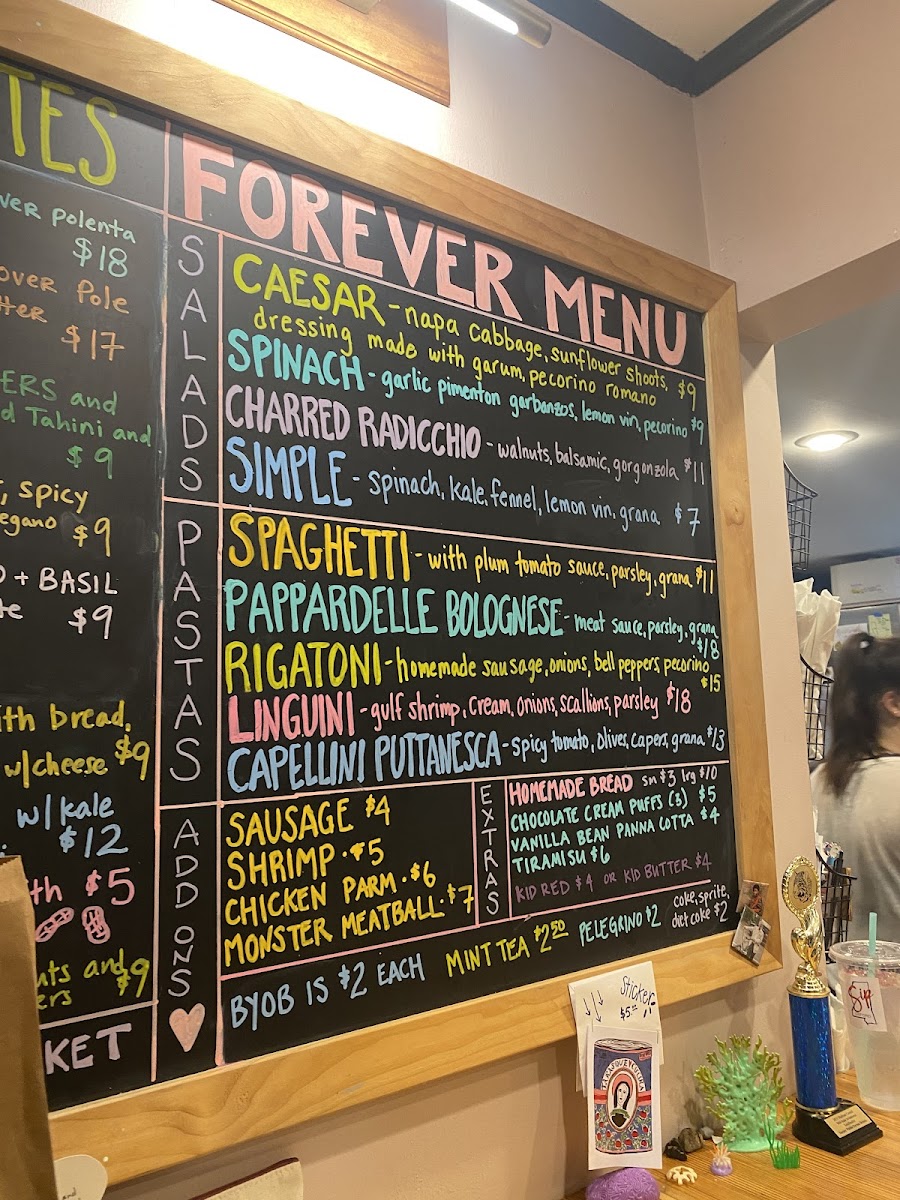 TES
ver polenta
$18
over Pole
tter $17
ERS and
d Tahini and
$9
, spicy
egano $9
O + BASIL
te $9
ith bread,
w/cheese $9
w/kale
$12
th $5
uts and
ers $9
KET
FOREVER MENU
SALADS
CAESAR - napa cabbage, sunflower shoots,
dressing made with garum, pecorino romano $9
SPINACH - garlic pimenton garbanzos, lemon vin, pecorino $9
CHARRED RADICCHIO - walnuts, balsamic, gorgonzola $11
SIMPLE - spinach, kale, fennel, lemon vin, grana $7
PASTAS
SPAGHETTI - with plum tomato sauce, parsley, grana $11
PAPPARDELLE BOLOGNESE - meat sauce, parsley, grana
$18
RIGATONI - homemade sausage, onions, bell peppers, pecorino
$15
LINGUINI - gulf shrimp, cream, onions, scallions, parsley $18
CAPELLINI PUTTANESCA - spicy tomato, olives, capers, grana $13
ADD ONS
SAUSAGE $4
SHRIMP · $5
CHICKEN PARM · $6
MONSTER MEATBALL · $7
EXTRAS
HOMEMADE BREAD sm $3 lrg $10
CHOCOLATE CREAM PUFFS (3) $5
VANILLA BEAN PANNA COTTA $4
TIRAMISU $6
KID RED $4 OR KID BUTTER $4
BYOB IS $2 EACH
MINT TEA $2.50
PELEGRINO $2
coke, sprite,
diet coke $2
Sticker
$5.00
Sip